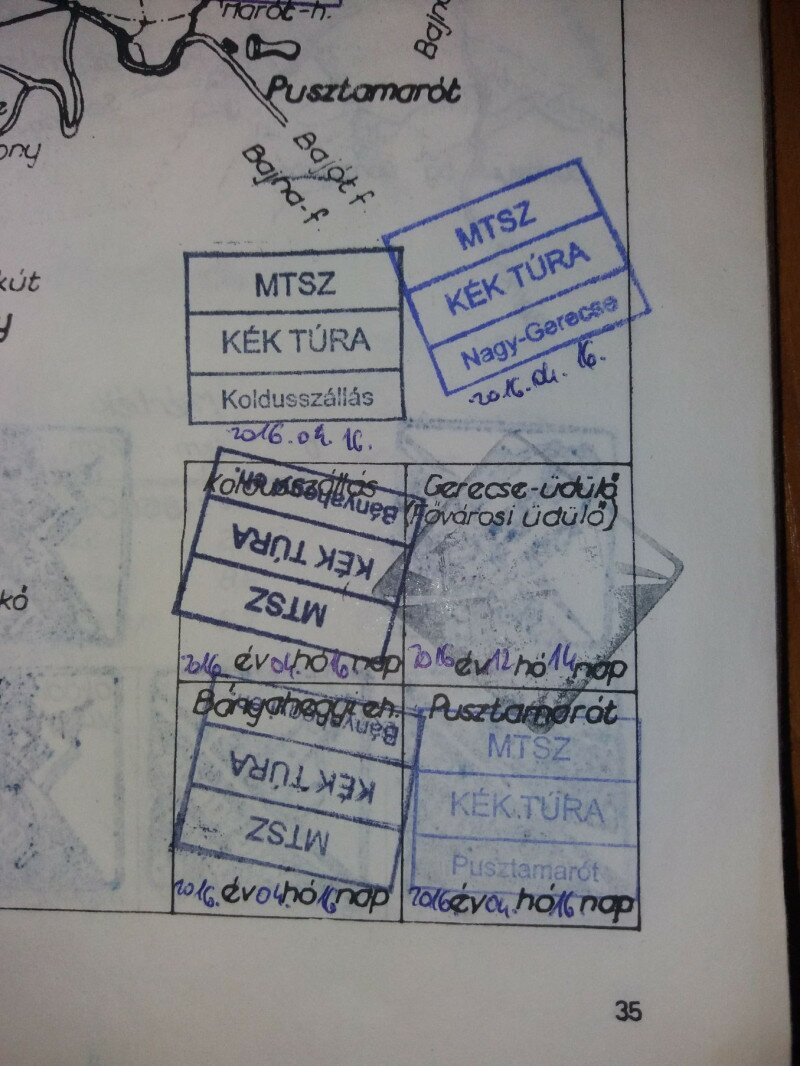 Marót-h.
Pusztamarót
Bajót f.
Bajna-f.
MTSZ
KÉK TÚRA
Koldusszállás
2016.04.16.
MTSZ
KÉK TÚRA
Nagy-Gerecse
2016.04.16.
Koldusszállás
Bányahegyi eh.
KÉK TÚRA
MTSZ
2016. év 04. hó 16. nap
Gerecse-üdülő
(Fővárosi üdülő)
2016 év 12 hó 14 nap
Bányahegyi eh.
Bányahegyi eh.
KÉK TÚRA
MTSZ
2016. év 04. hó 16 nap
Pusztamarót
MTSZ
KÉK TÚRA
Pusztamarót
2016 év 04. hó 16. nap
35